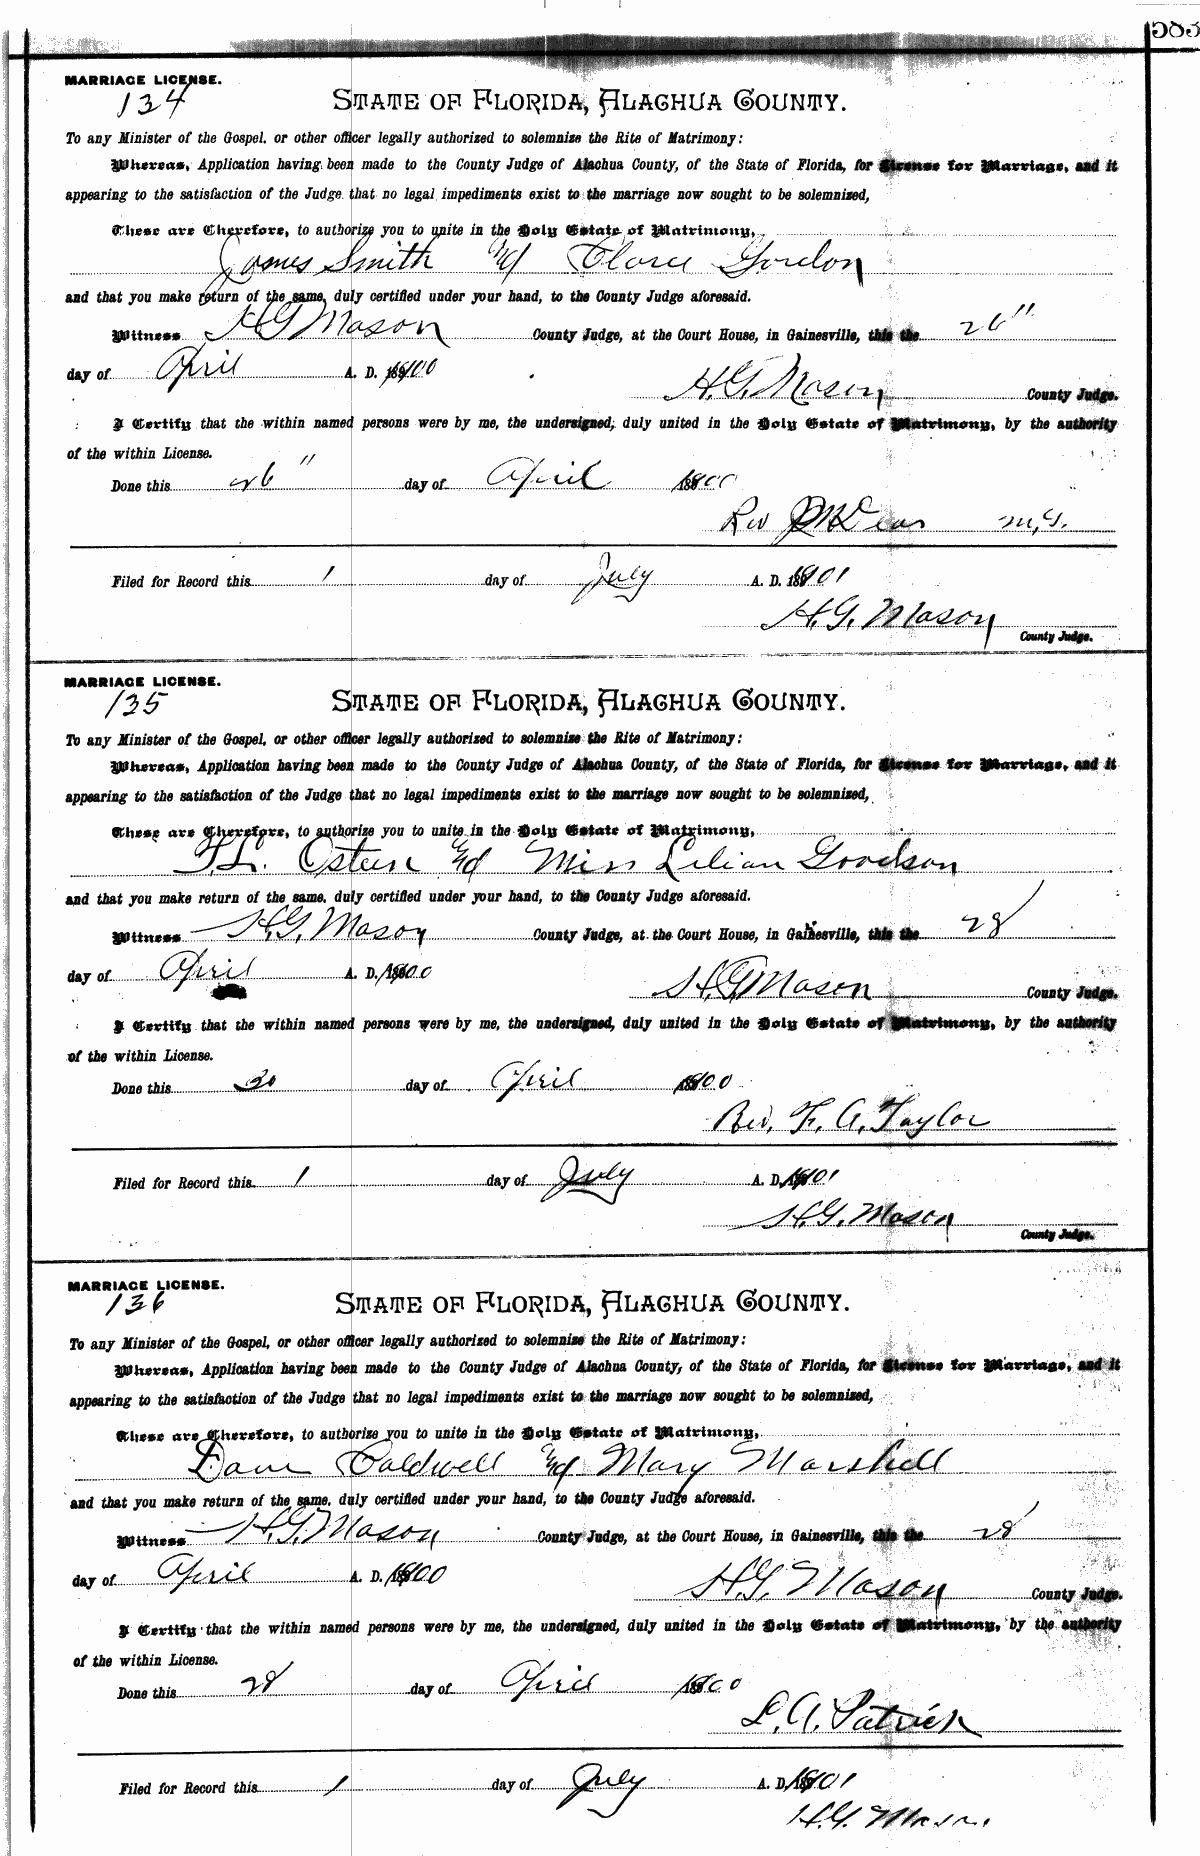 583
MARRIAGE LICENSE.
134
STATE OF FLORIDA, ALACHUA COUNTY.
To any Minister of the Gospel, or other officer legally authorized to solemnize the Rite of Matrimony:
Whereas, Application having been made to the County Judge of Alachua County, of the State of Florida, for License for Marriage, and it
appearing to the satisfaction of the Judge that no legal impediments exist to the marriage now sought to be solemnized,
These are Therefore, to authorize you to unite in the Holy Estate of Matrimony,
James Smith and Gordon
and that you make return of the same, duly certified under your hand, to the County Judge aforesaid.
Witness H.G. Mason County Judge, at the Court House, in Gainesville, this the 26"
day of April A. D. 1900
H.G. Mason County Judge.
I Certify that the within named persons were by me, the undersigned, duly united in the Holy Estate of Matrimony, by the authority
of the within License.
Done this 26" day of April 1900
Rev M.G.
Filed for Record this 1 day of July A. D. 1901
H.G. Mason
County Judge.
MARRIAGE LICENSE.
135
STATE OF FLORIDA, ALACHUA COUNTY.
To any Minister of the Gospel, or other officer legally authorized to solemnize the Rite of Matrimony:
Whereas, Application having been made to the County Judge of Alachua County, of the State of Florida, for License for Marriage, and it
appearing to the satisfaction of the Judge that no legal impediments exist to the marriage now sought to be solemnized,
These are Therefore, to authorize you to unite in the Holy Estate of Matrimony,
Osteen and Miss Lilian Goodson
and that you make return of the same, duly certified under your hand, to the County Judge aforesaid.
Witness H.G. Mason County Judge, at the Court House, in Gainesville, this the 28
day of April A. D. 1900
H.G. Mason County Judge.
I Certify that the within named persons were by me, the undersigned, duly united in the Holy Estate of Matrimony, by the authority
of the within License.
Done this 30 day of April 1900
Rev. F. A. Taylor
Filed for Record this 1 day of July A. D. 1901
H.G. Mason
County Judge.
MARRIAGE LICENSE.
136
STATE OF FLORIDA, ALACHUA COUNTY.
To any Minister of the Gospel, or other officer legally authorized to solemnize the Rite of Matrimony:
Whereas, Application having been made to the County Judge of Alachua County, of the State of Florida, for License for Marriage, and it
appearing to the satisfaction of the Judge that no legal impediments exist to the marriage now sought to be solemnized,
These are Therefore, to authorize you to unite in the Holy Estate of Matrimony,
Dave Caldwell and Mary Marshall
and that you make return of the same, duly certified under your hand, to the County Judge aforesaid.
Witness H.G. Mason County Judge, at the Court House, in Gainesville, this the 28
day of April A. D. 1900
H.G. Mason County Judge.
I Certify that the within named persons were by me, the undersigned, duly united in the Holy Estate of Matrimony, by the authority
of the within License.
Done this 28 day of April 1900
L. A. Patrick
Filed for Record this 1 day of July A. D. 1901
H.G. Mason